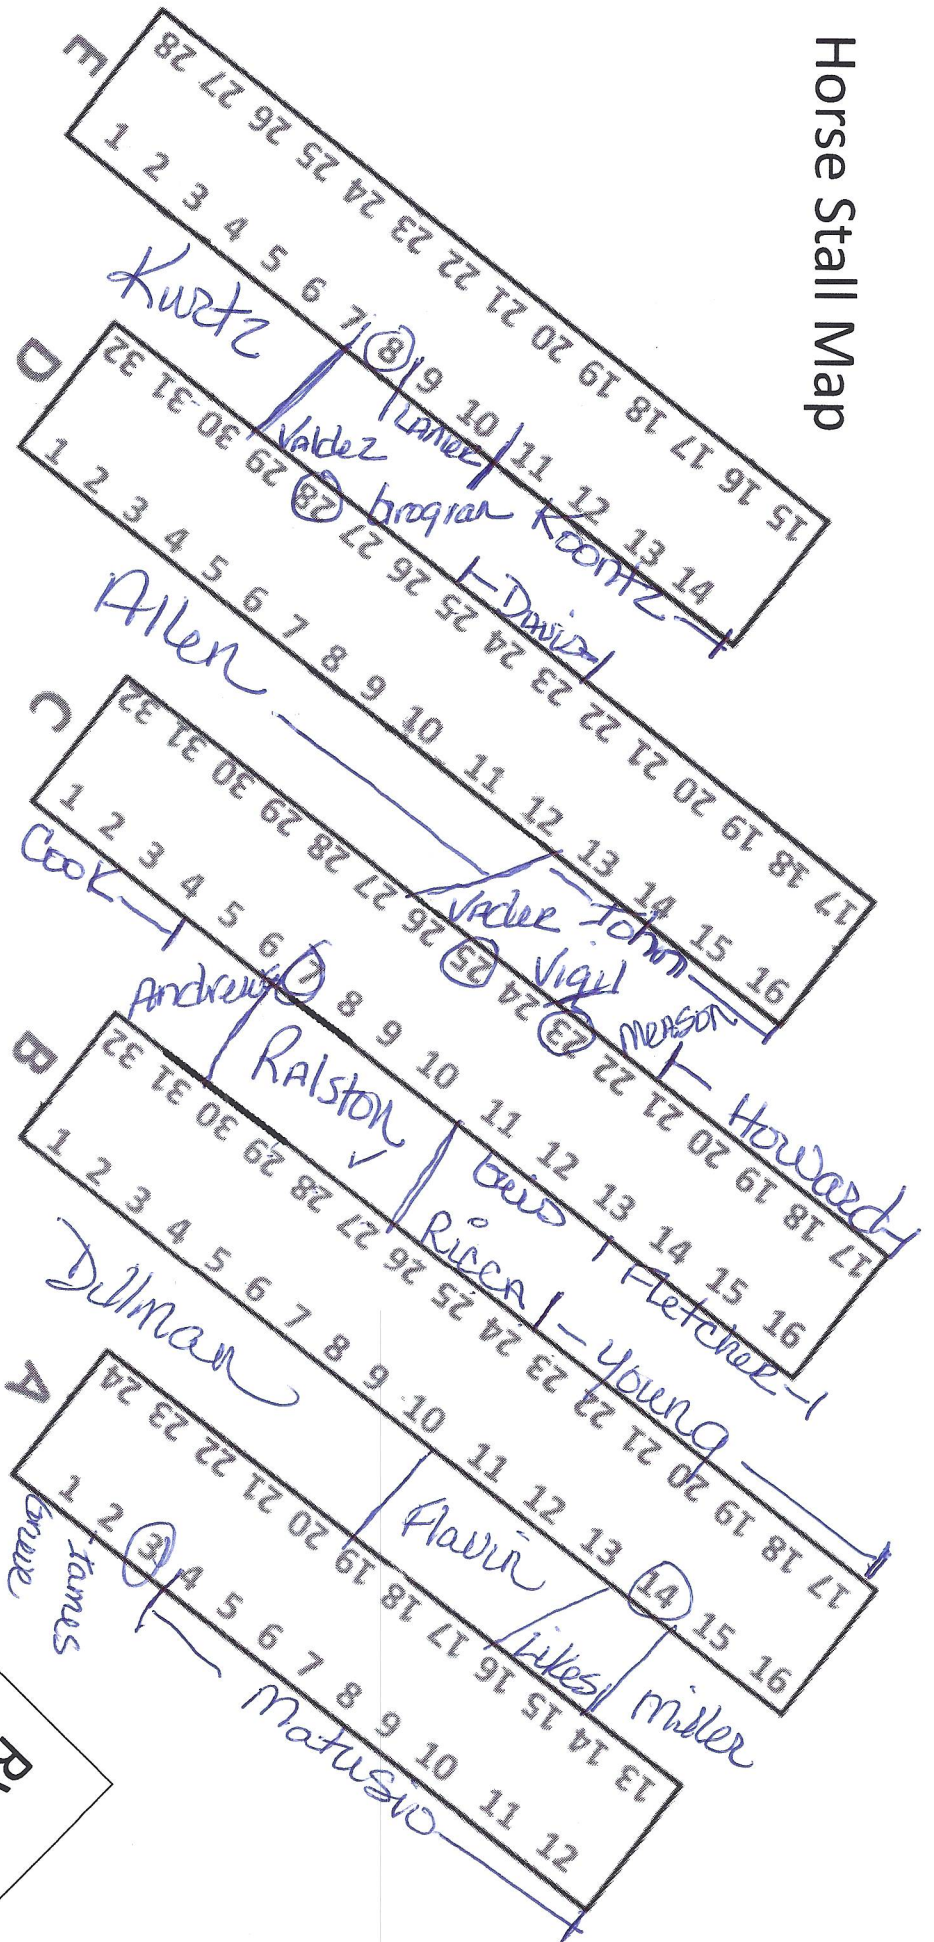 Horse Stall Map
E
28 27 26 25 24 23 22 21 20 19 18 17 16 15
1 2 3 4 5 6 7 8 9 10 11 12 13 14
Kurtz
Valdez
Koontz
David
D
32 31 30 29 28 27 26 25 24 23 22 21 20 19 18 17
1 2 3 4 5 6 7 8 9 10 11 12 13 14 15 16
Allen
Vader
John
Vigil
Meason
Howard
C
32 31 30 29 28 27 26 25 24 23 22 21 20 19 18 17
1 2 3 4 5 6 7 8 9 10 11 12 13 14 15 16
Cook
Andrews
Ralston
Ricca
Fletcher
Young
B
32 31 30 29 28 27 26 25 24 23 22 21 20 19 18 17
1 2 3 4 5 6 7 8 9 10 11 12 13 14 15 16
Dillman
Flavin
Likes
Miller
A
24 23 22 21 20 19 18 17 16 15 14 13
1 2 3 4 5 6 7 8 9 10 11 12
James
Matusio